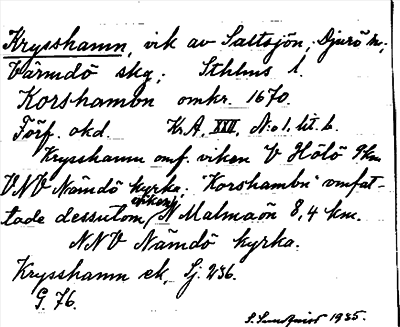 Krysshamn, vik av Saltsjön, Djurö kn;
Värmdö skg; Sthlms l.
Korshambn omkr. 1670.
Förf. okd. K.A. XXII, No 1, lit. b.
Krysshamn omf. viken V Hölö 9 km
VNV Nämdö kyrka. "Korshambn" omfat-
tade dessutom N Malmaön 8,4 km.
NNV Nämdö kyrka.
Krysshamn ek, Sj. 236.
G. 76.
S. Sundqvist 1935.